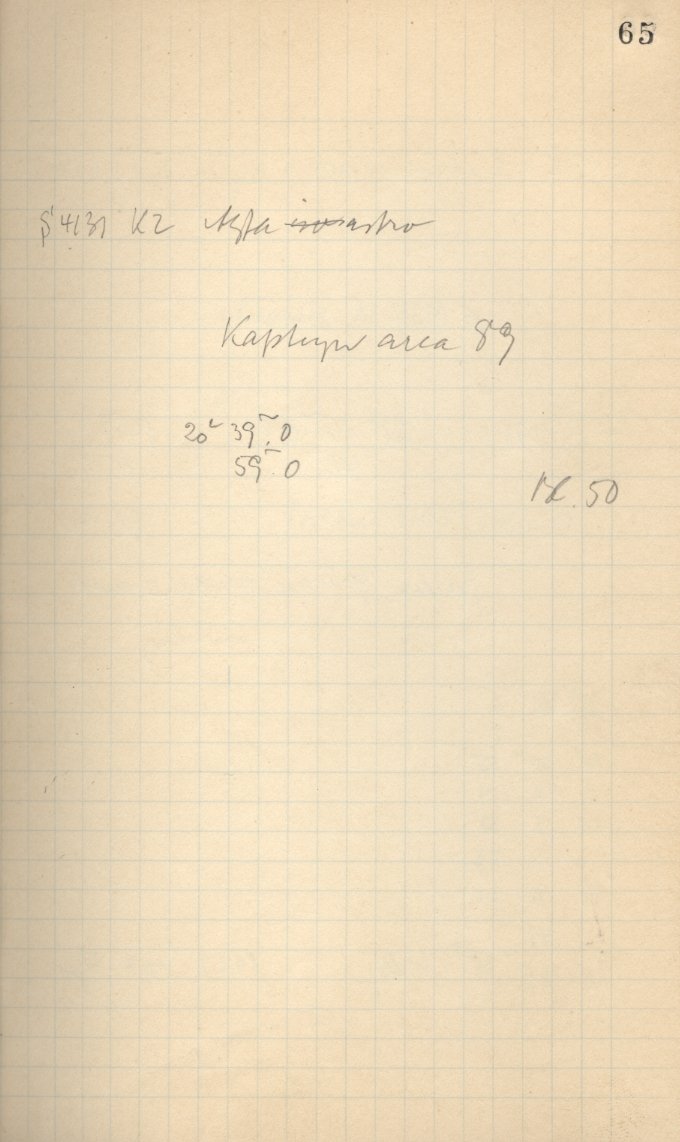 65
4131 K2 Agfa iso astro
Kapteyn area 89
20ʰ 39ᵐ.0
59ᵐ.0
50